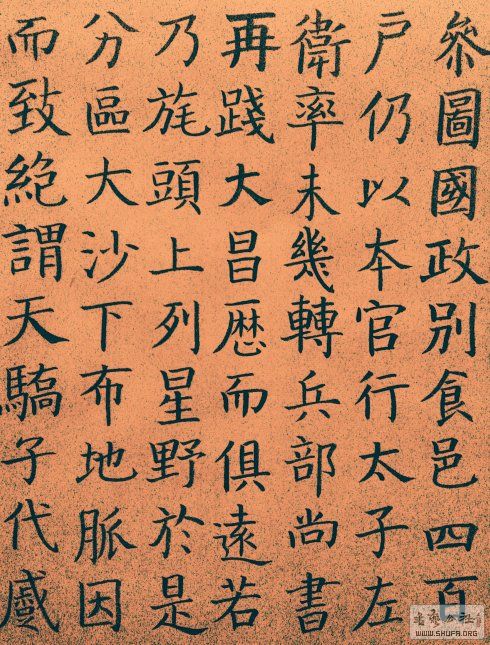 參圖國政別食邑四百
戶仍以本官行太子左
衛率未幾轉兵部尚書
再踐大昌而俱遠若
乃旄頭上列星野於是
分區大沙下布地脈因
而致絕謂天驕子代
书艺公社
WWW.SHUFA.ORG